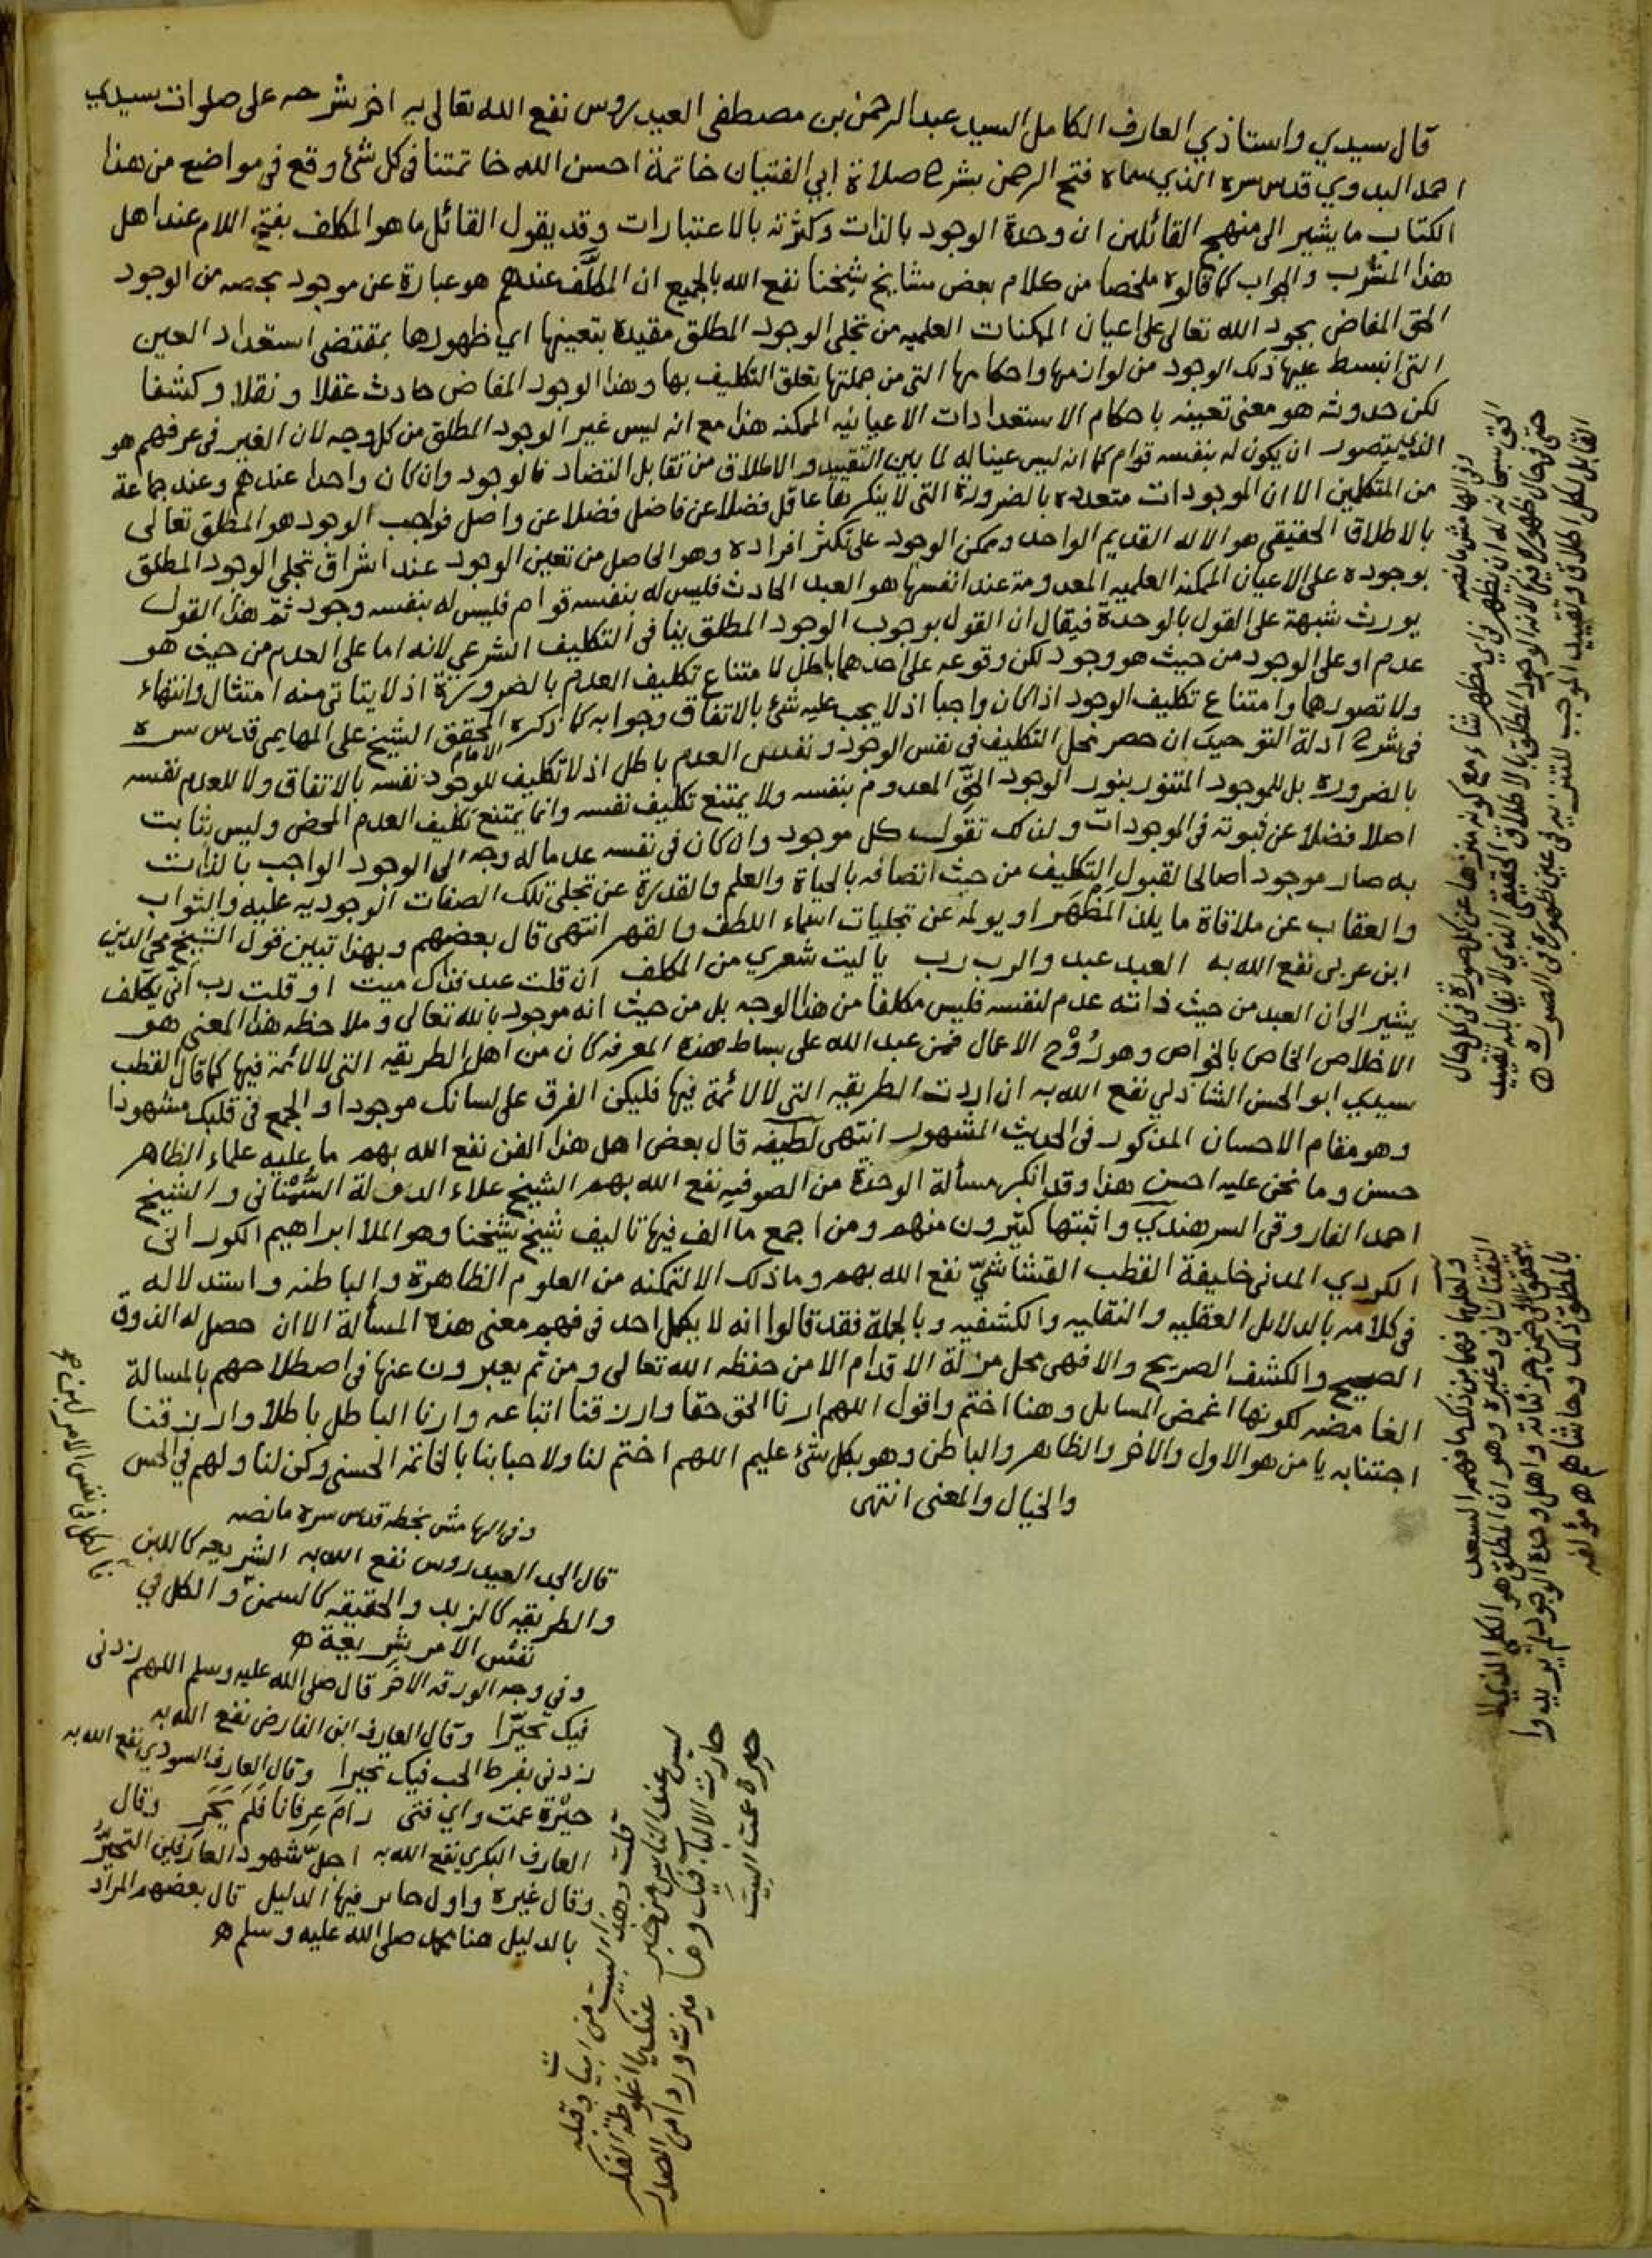 قال سيدي واستاذي العارف الكامل السيد عبد الرحمن بن مصطفى العيدروس نفع الله تعالى به اخر شرحه على صلوات سيدي
احمد البدوي قدس سره الذي سماه فتح الرحمن بشرح صلاة ابي الفتيان خاتمة احسن الله خاتمتنا في كل شئ وقع في مواضع من هذا
الكتاب ما يشير الى منهج القائلين ان وحدة الوجود بالذات وكثرته بالاعتبارات وقد يقول القائل ما هو المكلف بفتح اللام عند اهل
هذا المشرب والجواب كما قالوه ملخصا من كلام بعض مشايخ شيخنا نفع الله بالجميع ان المكلَّف عندهم هو عبارة عن موجود بحصه من الوجود
الحق المفاض بجود الله تعالى على اعيان الممكنات العلميه من تجلي الوجود المطلق مقيدة بتعينها اي ظهورها بمقتضى استعداد العين
التي انبسط عليها ذلك الوجود من لوازمها واحكامها التي من جملتها تعلق التكليف بها وهذا الوجود المفاض حادث عقلا ونقلا وكشفا
لكن حدوثه هو معنى تعينه باحكام الاستعدادات الاعيانيه الممكنه هذا مع انه ليس غير الوجود المطلق من كل وجه لان الغير في عرفهم هو
الذي يتصور ان يكون له بنفسه قوام كما انه ليس عينا له لما بين التقييد والاطلاق من تقابل التضاد فالوجود وان كان واحدا عندهم وعند جماعة
من المتكلمين الا ان الموجودات متعدده بالضرورة التي لا ينكرها عاقل فضلا عن فاضل فضلا عن واصل فواجب الوجود هو المطلق تعالى
بالاطلاق الحقيقي هو الاله القديم الواحد وممكن الوجود على تكثر افراده وهو الحاصل من تعين الوجود عند اشراق تجلي الوجود المطلق
بوجوده على الاعيان الممكنه العلميه المعدومة عند انفسها هو العبد الحادث فليس له بنفسه قوام فليس له بنفسه وجود ثمّ هذا القول
يورث شبهة على القول بالوحدة فيقال ان القول بوجوب الوجود المطلق ينافي التكليف الشرعي لانه اما على العدم من حيث هو
عدم او على الوجود من حيث هو وجود لكن وقوعه على احدهما باطل لامتناع تكليف العدم بالضرورة اذ لا يتاتى منه امتثال وانتهاء
ولا تصورهما وامتناع تكليف الوجود اذا كان واجبا اذ لا يجب عليه شئ بالاتفاق وجوابه كما ذكره الامام المحقق الشيخ علي المهايمي قدس سره
في شرح ادلة التوحيد ان حصر محل التكليف في نفس الوجود ونفس العدم باطل اذ لا تكليف للوجود نفسه بالاتفاق ولا للعدم نفسه
بالضروره بل للموجود المتنور بنور الوجود الحق المعدوم بنفسه ولا يمتنع تكليف نفسه وانما يمتنع تكليف العدم المحض وليس بثابت
اصلا فضلا عن ثبوته في الموجودات ولذلك تقول كل موجود وان كان في نفسه عدما له وجه الى الوجود الواجب بالذات
به صار موجودا صالحا لقبول التكليف من حيث اتصافه بالحياة والعلم والقدرة عن تجلي تلك الصفات الوجوديه عليه والثواب
والعقاب عن ملاقاة ما يلذ المظهر او يولمه عن تجليات اسماء اللطف والقهر انتهى قال بعضهم وبهذا تبين قول الشيخ محي الدين
ابن عربي نفع الله به العبد عبد والرب رب يا ليت شعري من المكلف ان قلت عبد فذاك ميت او قلت رب أنى يكلف
يشير الى ان العبد من حيث ذاته عدم لنفسه فليس مكلفا من هذا الوجه بل من حيث انه موجود بالله تعالى وملاحظه هذا المعنى هو
الاخلاص الخاص بالخواص وهو رُوْح الاعمال فمن عبد الله على بساط هذه المعرفه كان من اهل الطريقه التي لا لائمة فيها كما قال القطب
سيدي ابو الحسن الشاذلي نفع الله به ان اردت الطريقه التي لا لائمة فيها فليكن الفرق على لسانك موجودا والجمع في قلبك مشهودا
وهو مقام الاحسان المذكور في الحديث المشهور انتهى لطيفه قال بعض اهل هذا الفن نفع الله بهم ما عليه علماء الظاهر
حسن وما نحن عليه احسن هذا وقد انكر مسألة الوحدة من الصوفيه نفع الله بهم الشيخ علاء الدولة السِّمْناني والشيخ
احمد الفاروقي السرهندي واثبتها كثيرون منهم ومن اجمع ما الف فيها تاليف شيخ شيخنا وهو الملا ابراهيم الكوراني
الكردي المدني خليفة القطب القشاشيّ نفع الله بهم وما ذلك الا لتمكنه من العلوم الظاهرة والباطنه واستدلاله
في كلامه بالدلايل العقليه والنقليه والكشفيه وبالجملة فقد قالوا انه لا يكمل احد في فهم معنى هذه المسألة الا ان حصل له الذوق
الصحيح والكشف الصريح والا فهي محل مزلة الاقدام الا من حفظه الله تعالى ومن ثم يعبرون عنها في اصطلاحهم بالمسالة
الغامضه لكونها اغمض المسايل وهنا اختم واقول اللهم ارنا الحق حقا وارزقنا اتباعه وارنا الباطل باطلا وارزقنا
اجتنابه يا من هو الاول والاخر والظاهر والباطن وهو بكل شئ عليم اللهم اختم لنا ولاحبابنا بالخاتمه الحسنى وكن لنا ولهم في الحس
والخيال والمعنى انتهى
وفي الهامش بخطه قدس سره ما نصه
قال الجد العيدروس نفع الله به الشريعه كاللبن
والطريقه كالزبد والحقيقه كالسمن والكل في
نفس الامر شريعة ه
وفي وجه الورقه الاخر قال صلى الله عليه وسلم اللهم زدني
فيك تحيّرا وقال العارف ابن الفارض نفع الله به
زدني بفرط الحب فيك تحيرا وقال العارف السودي نفع الله به
حيْرة عمت واي فتى رامَ عِرفانا فَلَمْ يَحَرِ وقال
العارف البكري نفع الله به اجلّ شهود العارفين التحيّرُ
وقال غيره واول حاير فيها الدليل قال بعضهم المراد
بالدليل هنا محمد صلى الله عليه وسلم ه
قلت وهذا البيت من ابيات وقبله
ليس عند الناس من خبر عنك يا اغلوطة الفكر
حارت الالباب فيك وما ميزت وردا من الصدر
حيرة عمت البيت
وفي الهامش ما نصه
الحق سبحانه له ان يظهر في اي مظهر شاء مع كونه منزها عن كل صورة في كل حال
حتى في حال ظهوره فيه لانه الوجود المطلق بالاطلاق الحقيقي الذي لا يقابله تقييد
القابل لكل اطلاق وتقييد الموجب للتنزيه في عين ظهوره في الصوره ه
التفتازاني وغيره وهو ان المطلق هو الكلي الذي لا
يتحقق الا في ضمن جزئياته واهل وحدة الوجود لم يريدوا
بالمطلق ذلك وحاشاهم ه مؤلفه